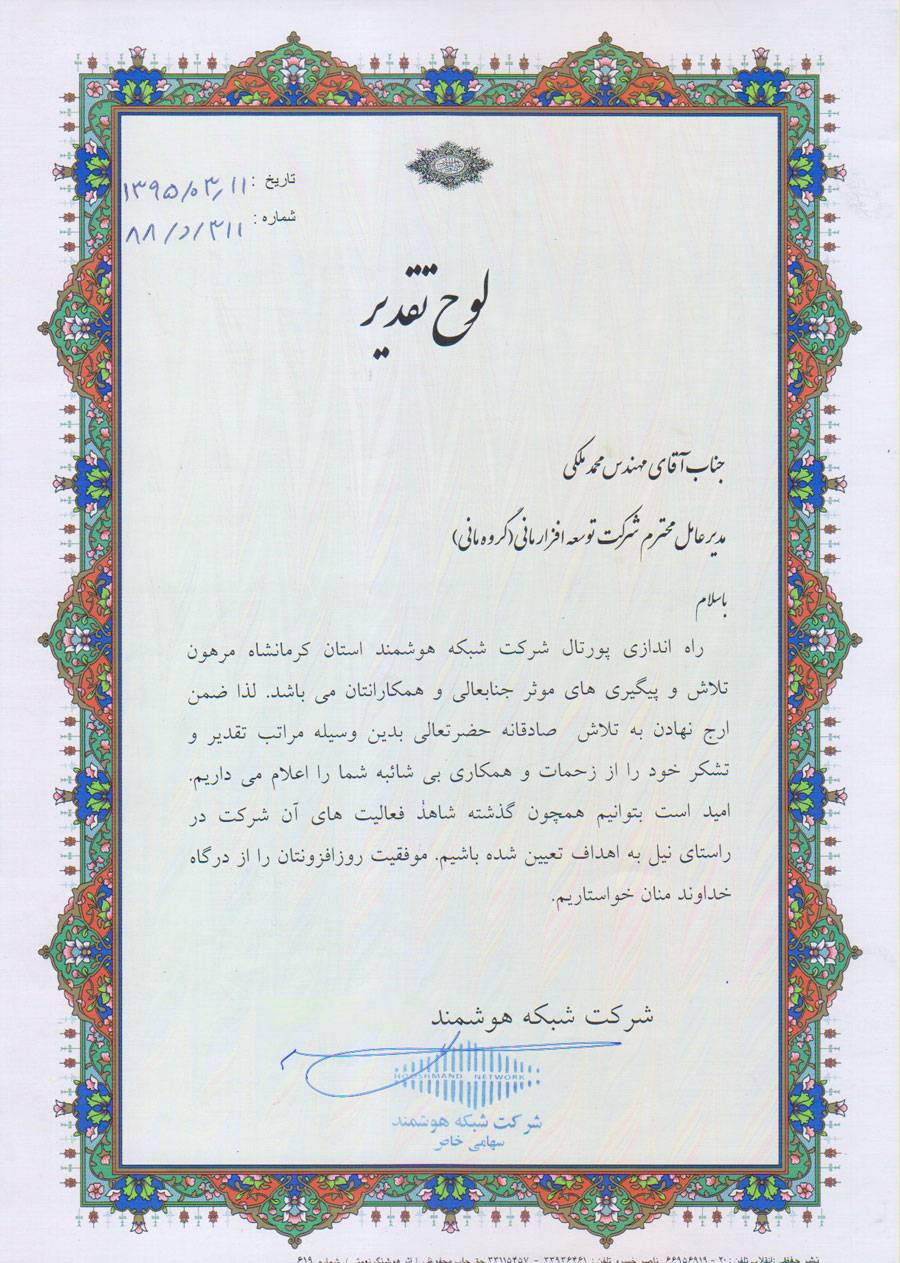 تاریخ : ۱۳۹۵/۰۳/۱۱
شماره : ۸۸/د/۳۱۱
لوح تقدیر
جناب آقای مهندس محمد ملکی
مدیر عامل محترم شرکت توسعه افزار مانی (گروه مانی)
باسلام
راه اندازی پورتال شرکت شبکه هوشمند استان کرمانشاه مرهون
تلاش و پیگیری های موثر جنابعالی و همکارانتان می باشد. لذا ضمن
ارج نهادن به تلاش صادقانه حضرتعالی بدین وسیله مراتب تقدیر و
تشکر خود را از زحمات و همکاری بی شائبه شما را اعلام می داریم.
امید است بتوانیم همچون گذشته شاهد فعالیت های آن شرکت در
راستای نیل به اهداف تعیین شده باشیم. موفقیت روزافزونتان را از درگاه
خداوند منان خواستاریم.
شرکت شبکه هوشمند
HOOSHMAND NETWORK
شرکت شبکه هوشمند
سهامی خاص